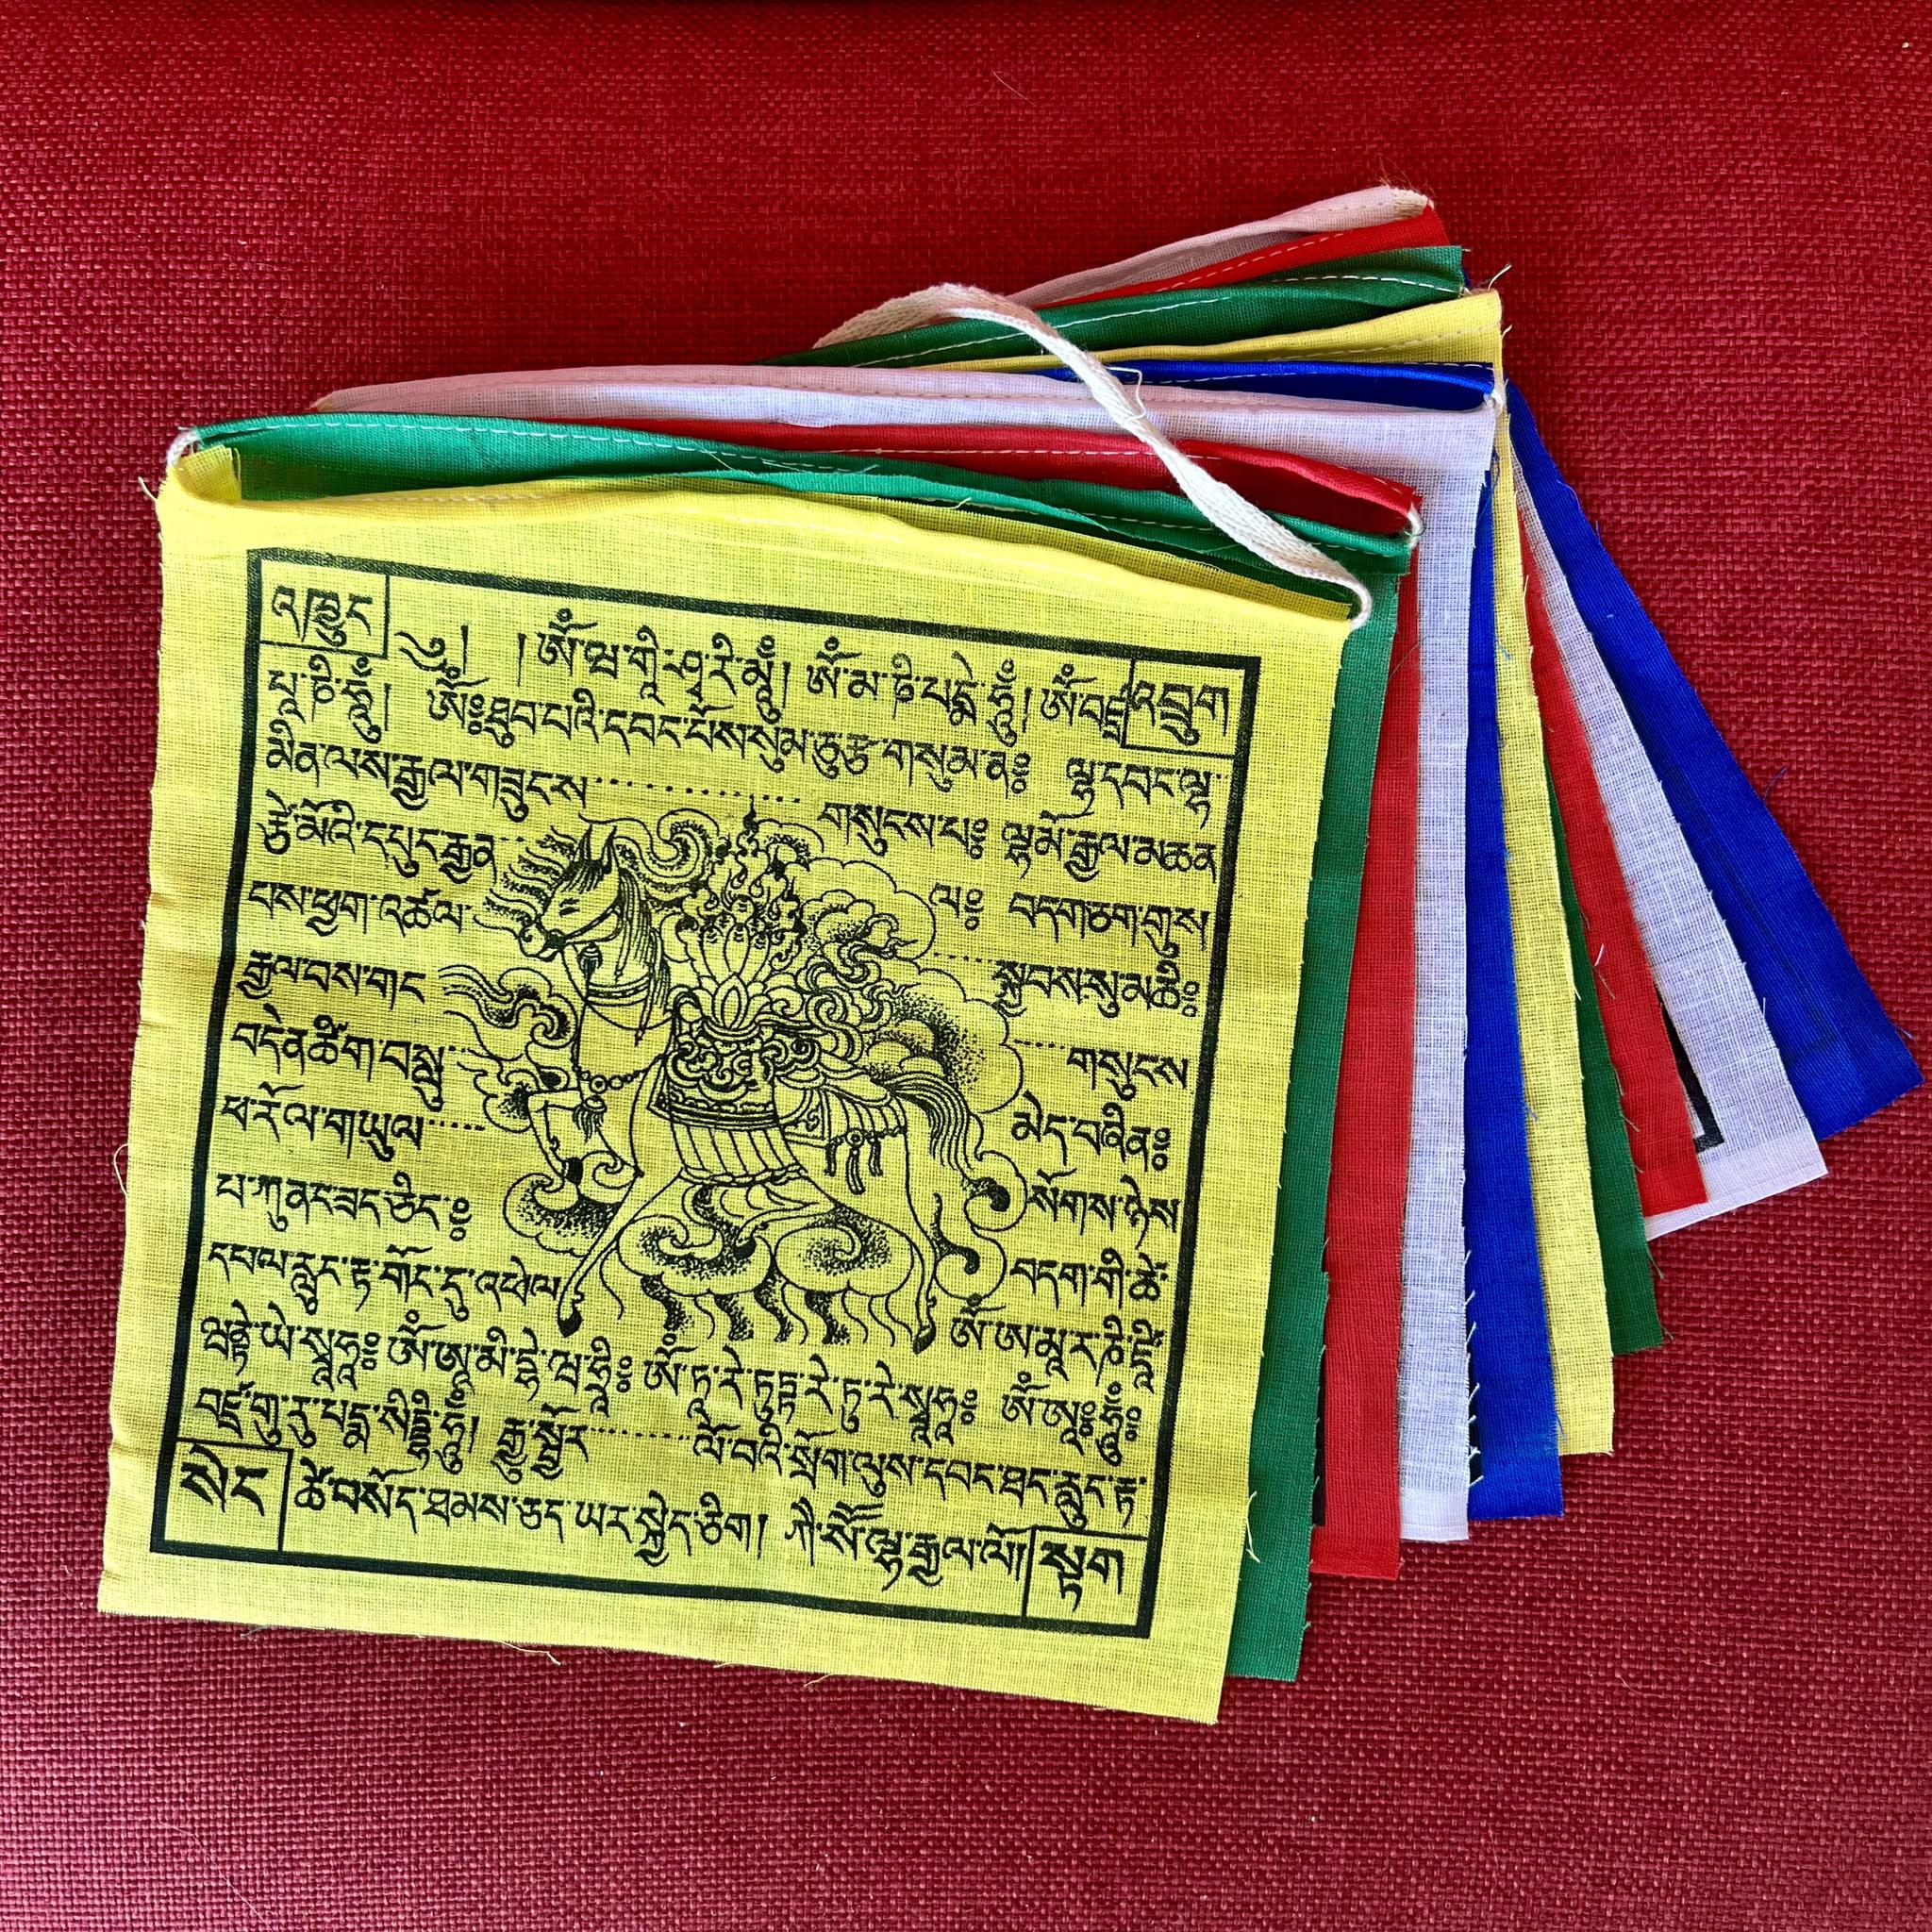 འཁྱུང
༄། །ཨོཾ་ཝ་གཱི་ཤྭ་རི་མཱུཾ། ཨོཾ་མ་ཎི་པདྨེ་ཧཱུྃ། ཨོཾ་བཛྲ
འབྲུག
པཱ་ཎི་ཧཱུྃ། ཨོཾ༔ཐུབ་པའི་དབང་པོས་སུམ་ཅུ་རྩ་གསུམ་ན༔ ལྷ་དབང་ལྷ་
མིན་ལས་རྒྱལ་གཟུངས་ གསུངས་པ༔ ལྷ་མོ་རྒྱལ་མཚན
རྩེ་མོའི་དཔུང་རྒྱན་
བས་ཕྱག་འཚལ་ ལ༔ བདག་ཅག་གུས
རྒྱལ་བས་གང སྐྱབས་སུ་མཆི༔
བདེན་ཚིག་བསླུ་ གསུངས
ཕ་རོལ་གཡུལ་ མེད་བཞིན༔
པ་ཀུན་ཟད་ཅིང་༔ སོགས་ཉེས
དཔལ་རླུང་རྟ་གོང་དུ་འཕེལ བདག་གི་ཚེ་
ཨོཾ་ཨ་མཱ་ར་ཎི་ཛཱི
ཝནྟེ་ཡེ་སྭཱཧཱ༔ ཨོཾ་ཨཱ་མི་དྷེ་ཝ་ཧྲཱི༔ ཨོཾ་ཏཱ་རེ་ཏུཏྟཱ་རེ་ཏུ་རེ་སྭཱཧཱ༔ ཨོཾ་ཨཱཿཧཱུྃ༔
བཛྲ་གུ་རུ་པདྨ་སིདྡྷི་ཧཱུྃ། རྒྱུ་སྦྱོར་ ལོ་བའི་སྲོག་ལུས་དབང་ཐང་རླུང་རྟ་
སེང
ཚེ་བསོད་ཐམས་ཅད་ཡར་སྐྱེད་ཅིག། ཀི་སོ་ལྷ་རྒྱལ་ལོ།
སྟག